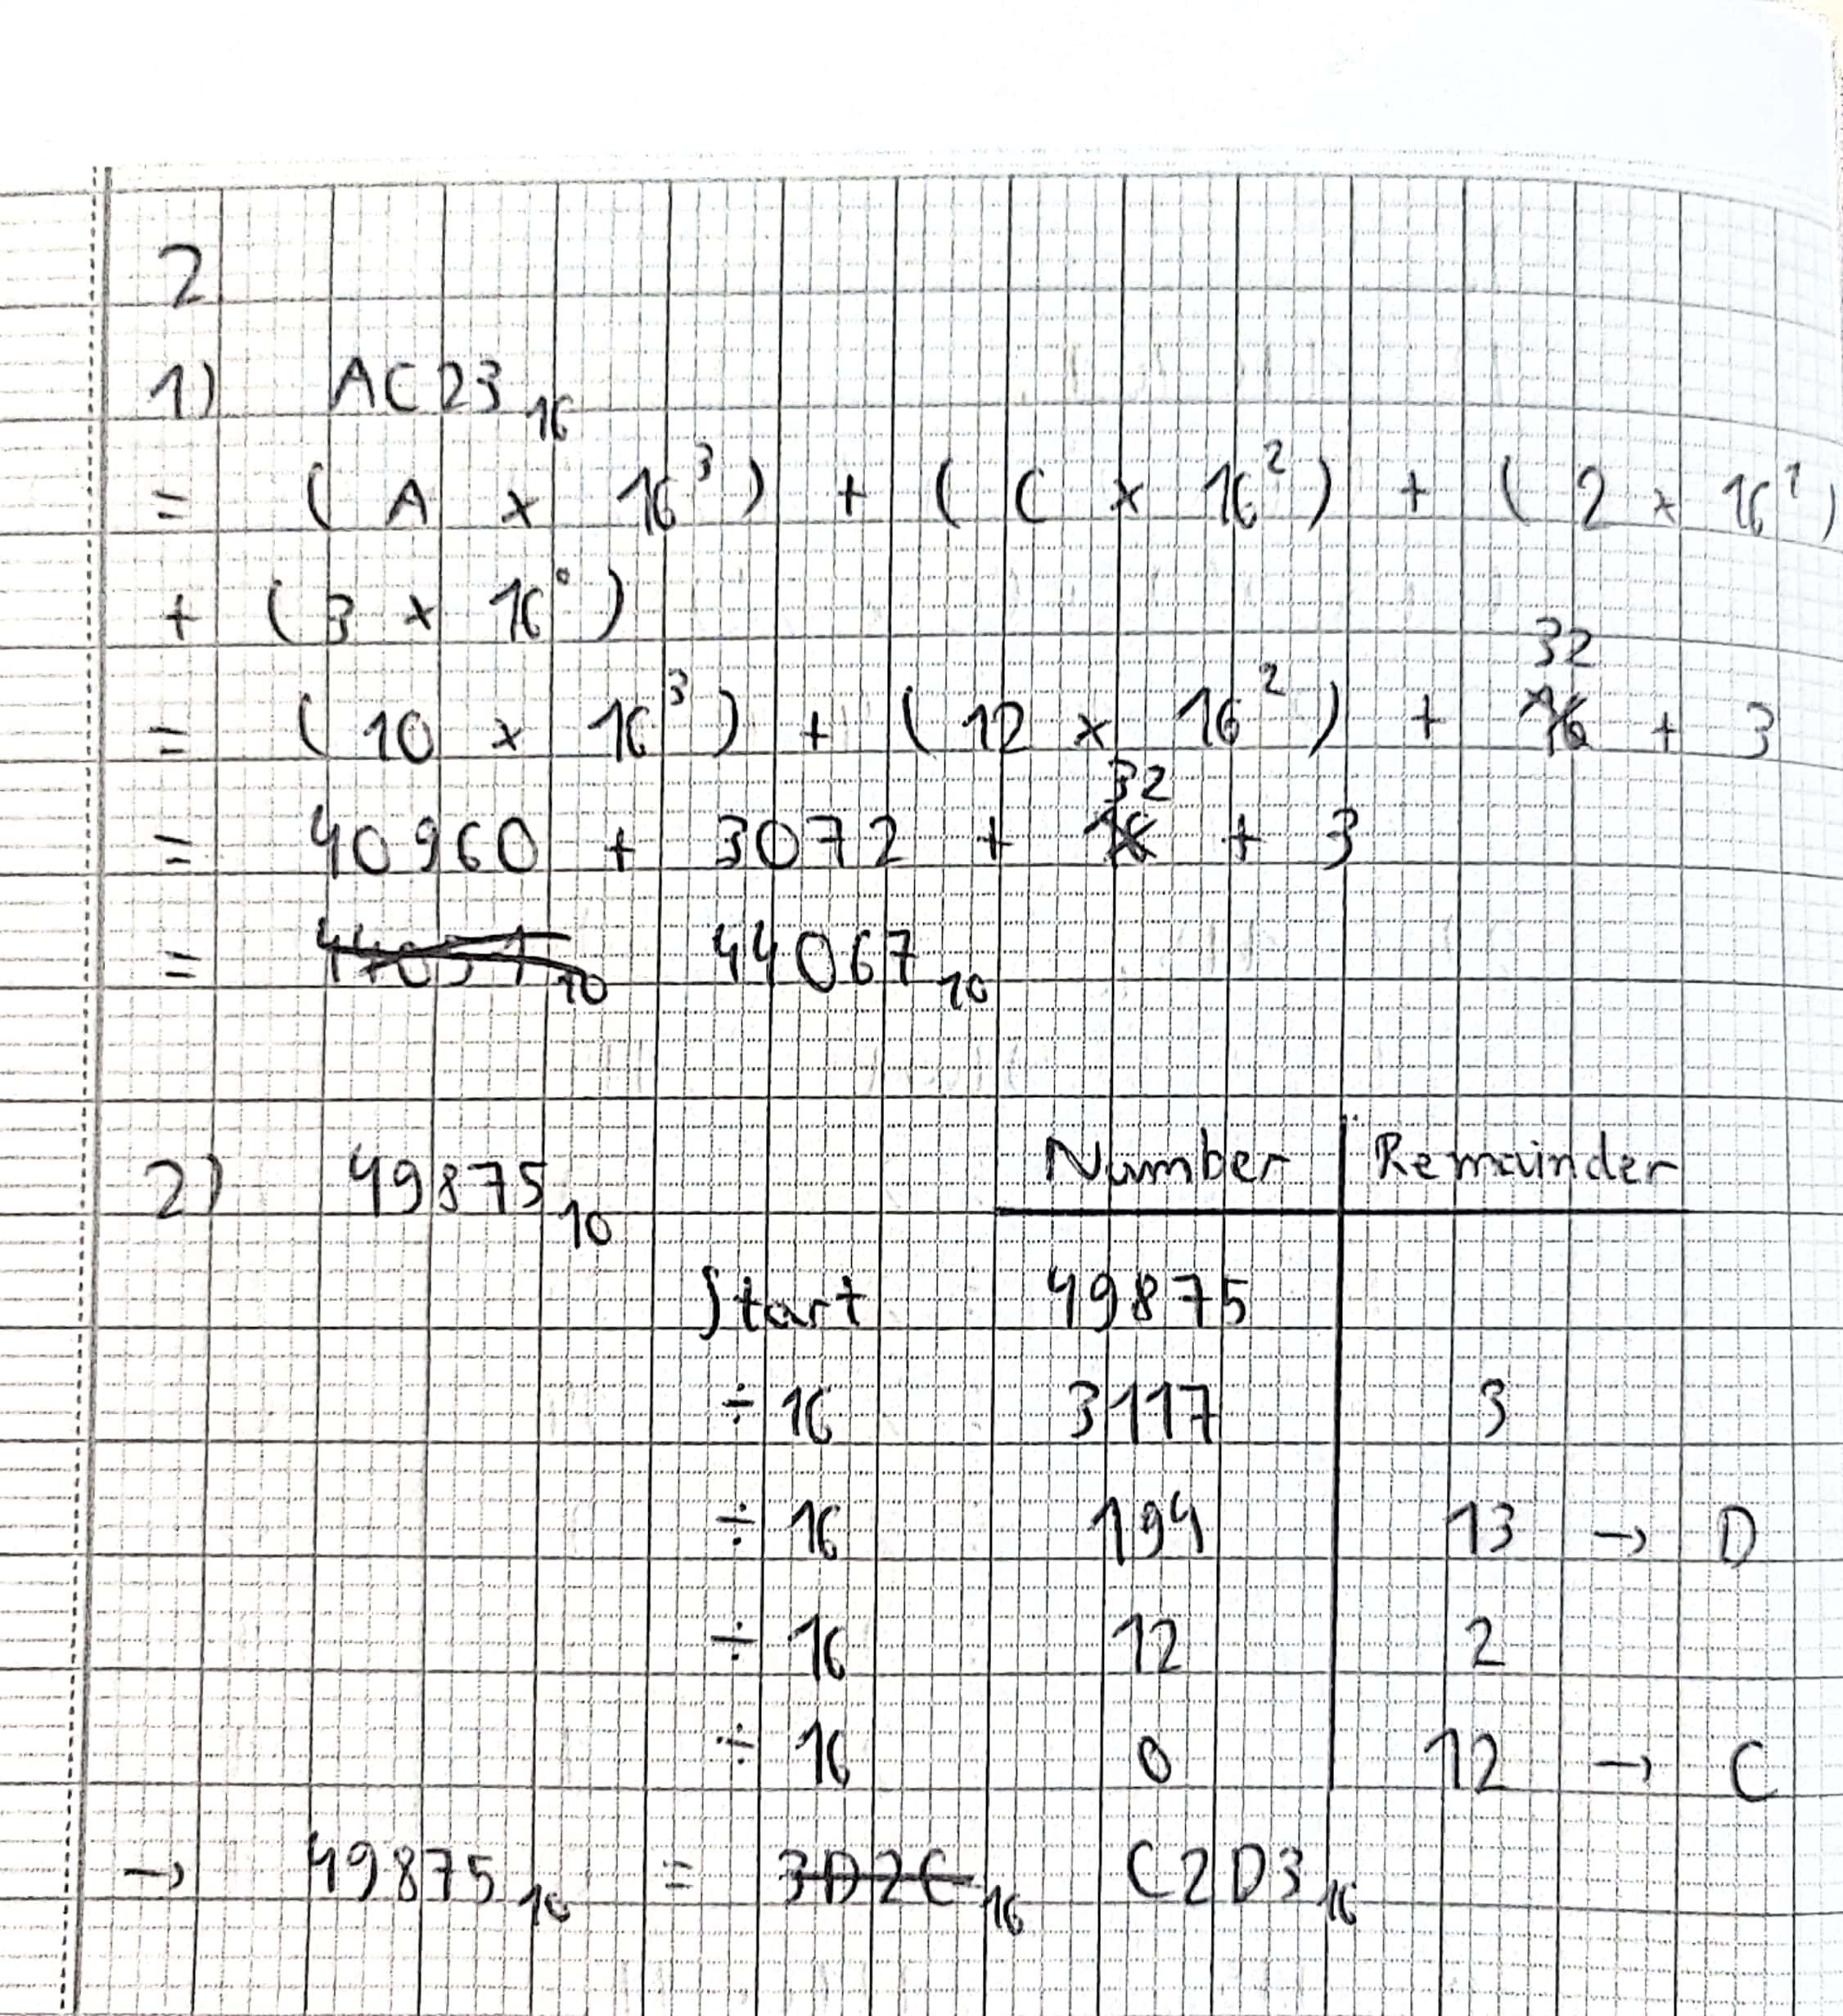 2
1) AC23₁₆
= (A × 16³) + (C × 16²) + (2 × 16¹)
+ (3 × 16⁰)
32
= (10 × 16³) + (12 × 16²) + ~~16~~ + 3
32
= 40960 + 3072 + ~~16~~ + 3
= ~~44051~~₁₀ 44067₁₀
2) 49875₁₀
Number Remainder
Start 49875
÷ 16 3117 3
÷ 16 194 13 → D
÷ 16 12 2
÷ 16 0 12 → C
→ 49875₁₀ = ~~3D2C~~₁₆ C2D3₁₆